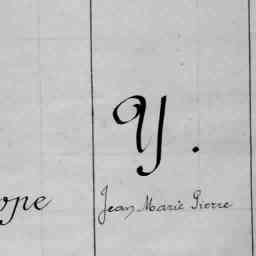 Y.
Jean Marie Pierre